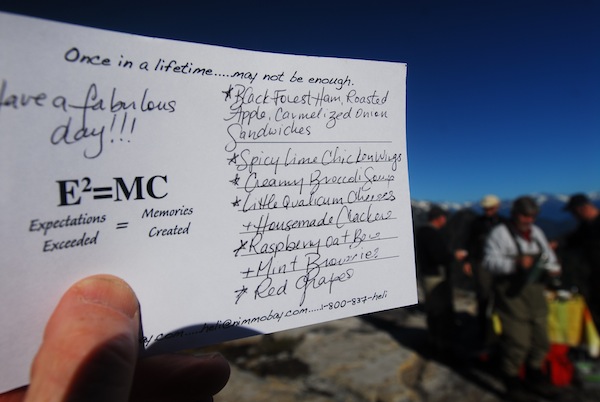 Once in a lifetime.....may not be enough.
Have a fabulous
day!!!
E²=MC
Expectations Exceeded = Memories Created
*Black Forest Ham, Roasted
Apple, Carmelized Onion
Sandwiches
*Spicy Lime Chicken Wings
*Creamy Broccoli Soup
*Little Qualicum Cheeses
+ Housemade Crackers
*Raspberry Oat Bars
+ Mint Brownies
*Red Grapes
heli@nimmobay.com.....1-800-837-heli